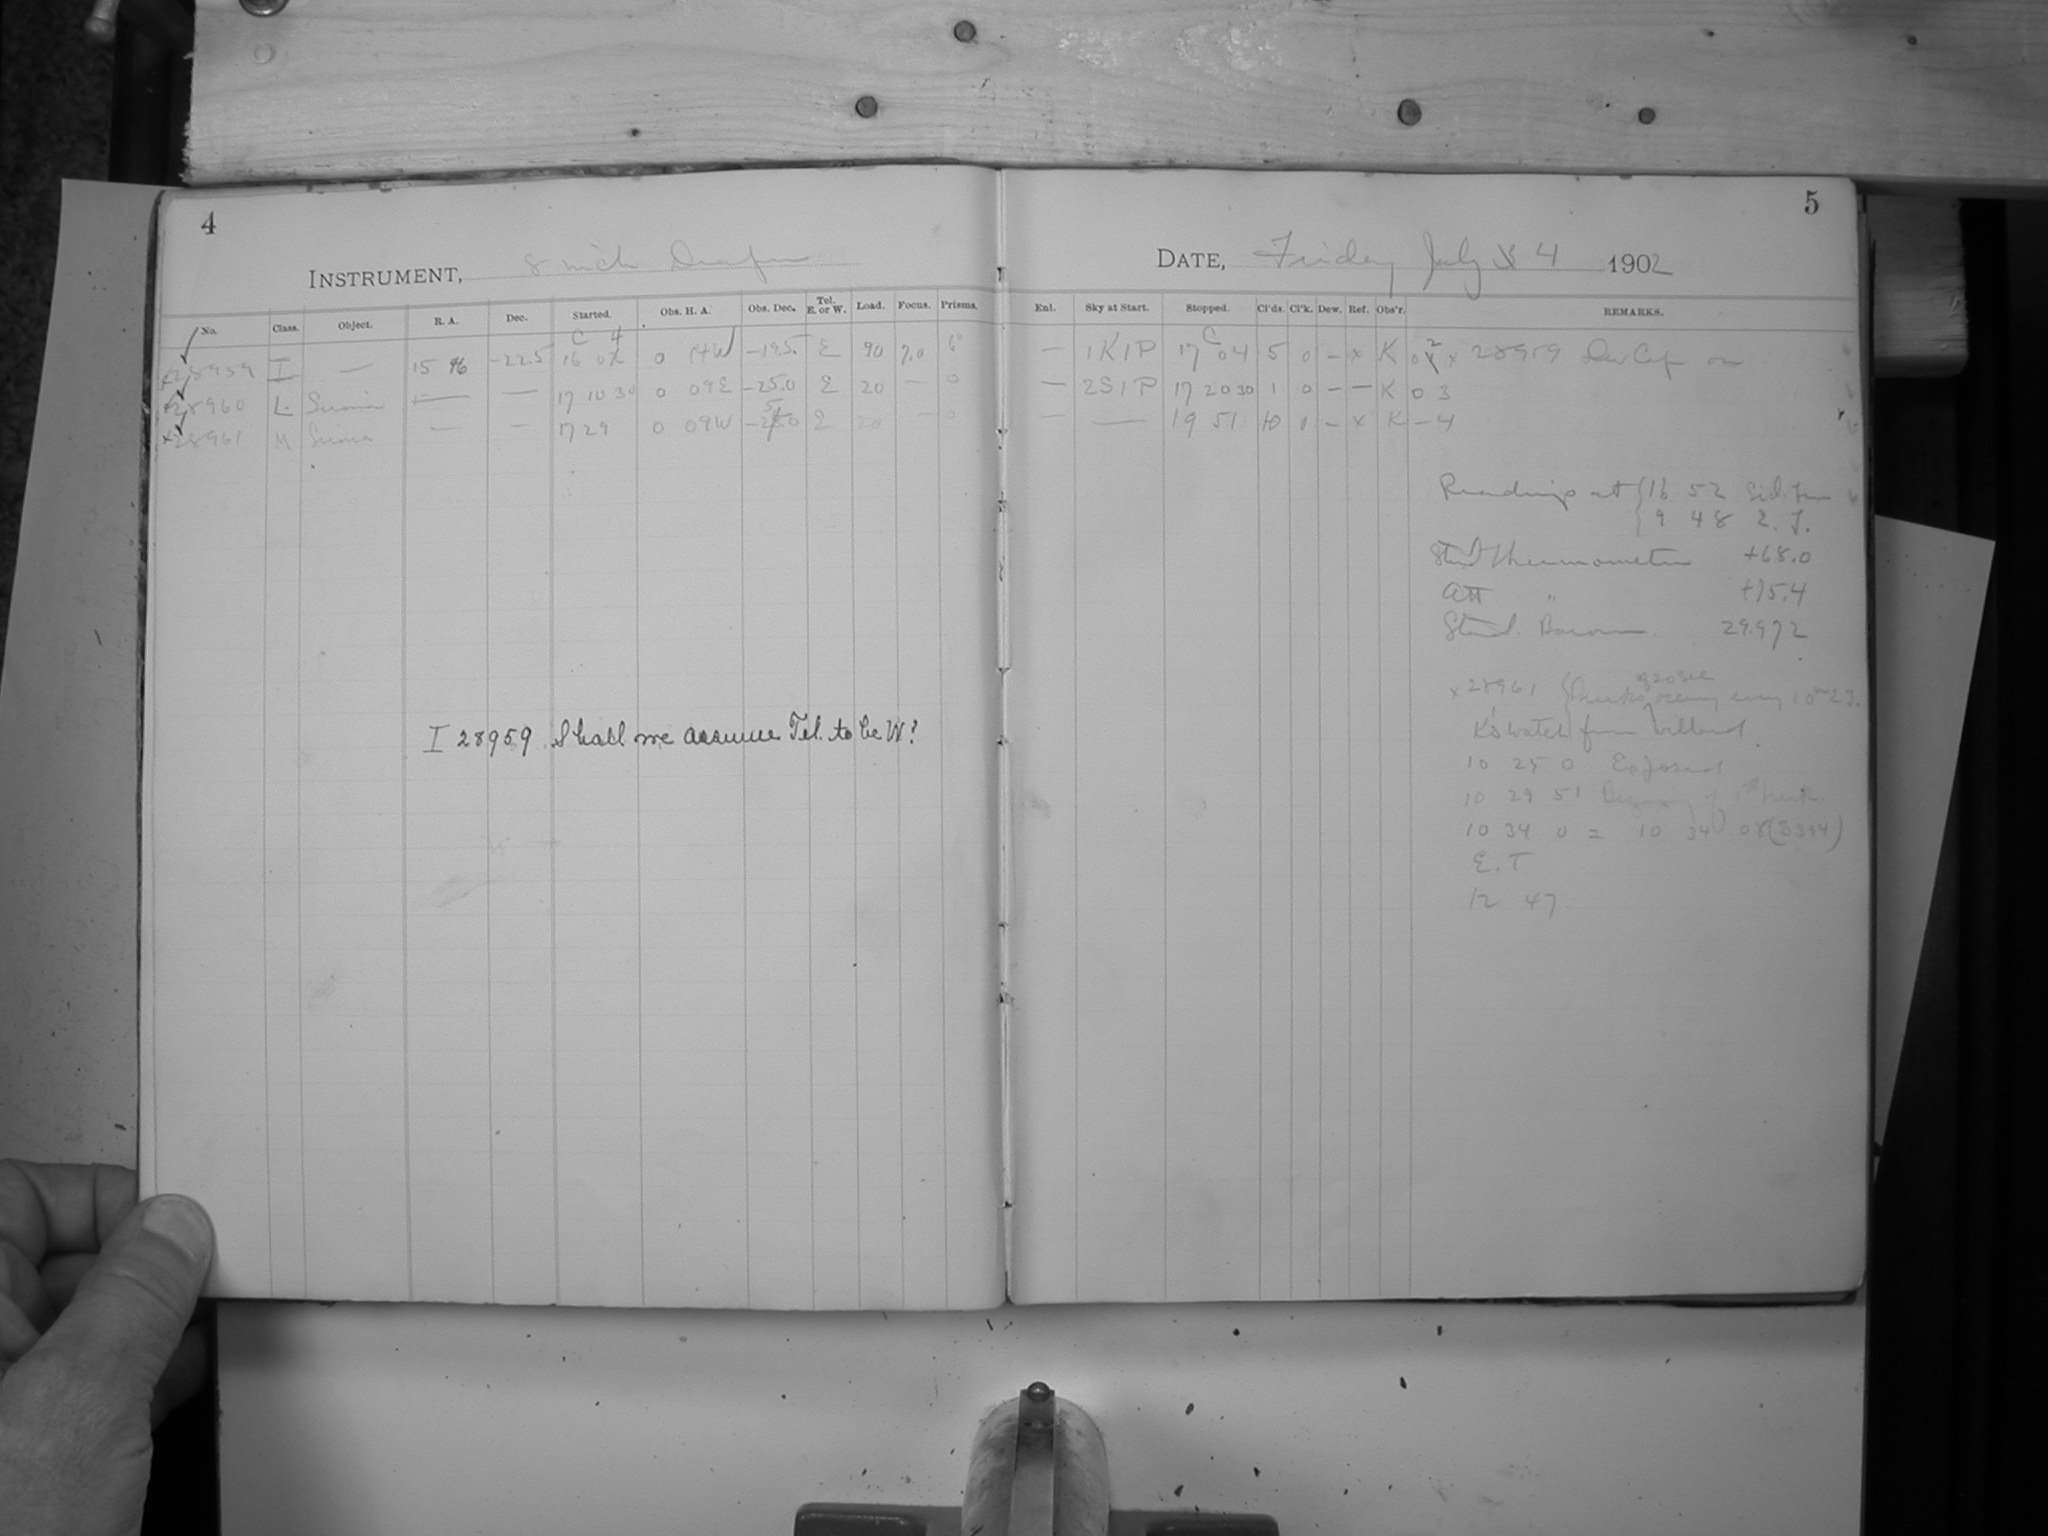 4
INSTRUMENT, 8 inch Draper
No. Class. Object. R. A. Dec. Started. Obs. H. A. Obs. Dec. Tel. E. or W. Load. Focus. Prisms.
28959 I — 15 46 -22.5 16 04 0 14W -19.5 E 90 7.0
28960 L — — 17 10 30 0 09E -25.0 E 20 — 0
28961 — — 17 29 0 09W E 20 — 0
I 28959 Shall we assume Tel. to be W?
5
DATE, Friday July 4 1902
Enl. Sky at Start. Stopped. Cl'ds. Cl'k. Dew. Ref. Obs'r. REMARKS.
— 1K1P 17 04 5 0 – x K 02 x 28959 Dew Cap on
— 2S1P 17 20 30 1 0 – — K 0 3
— — 19 51 10 0 – x K – 4
Readings at 16 52 Sid. Time
9 48 E. T.
Stand Thermometer +68.0
Att " +75.4
Stand. Barom 29.972
x 28961 of 20 sec every 10m E.T.
K's watch from Willard.
10 25 0 Exposed
10 29 51 Beginning of 1st
10 34 0 = 10 34 08 (3394)
E. T
12 47